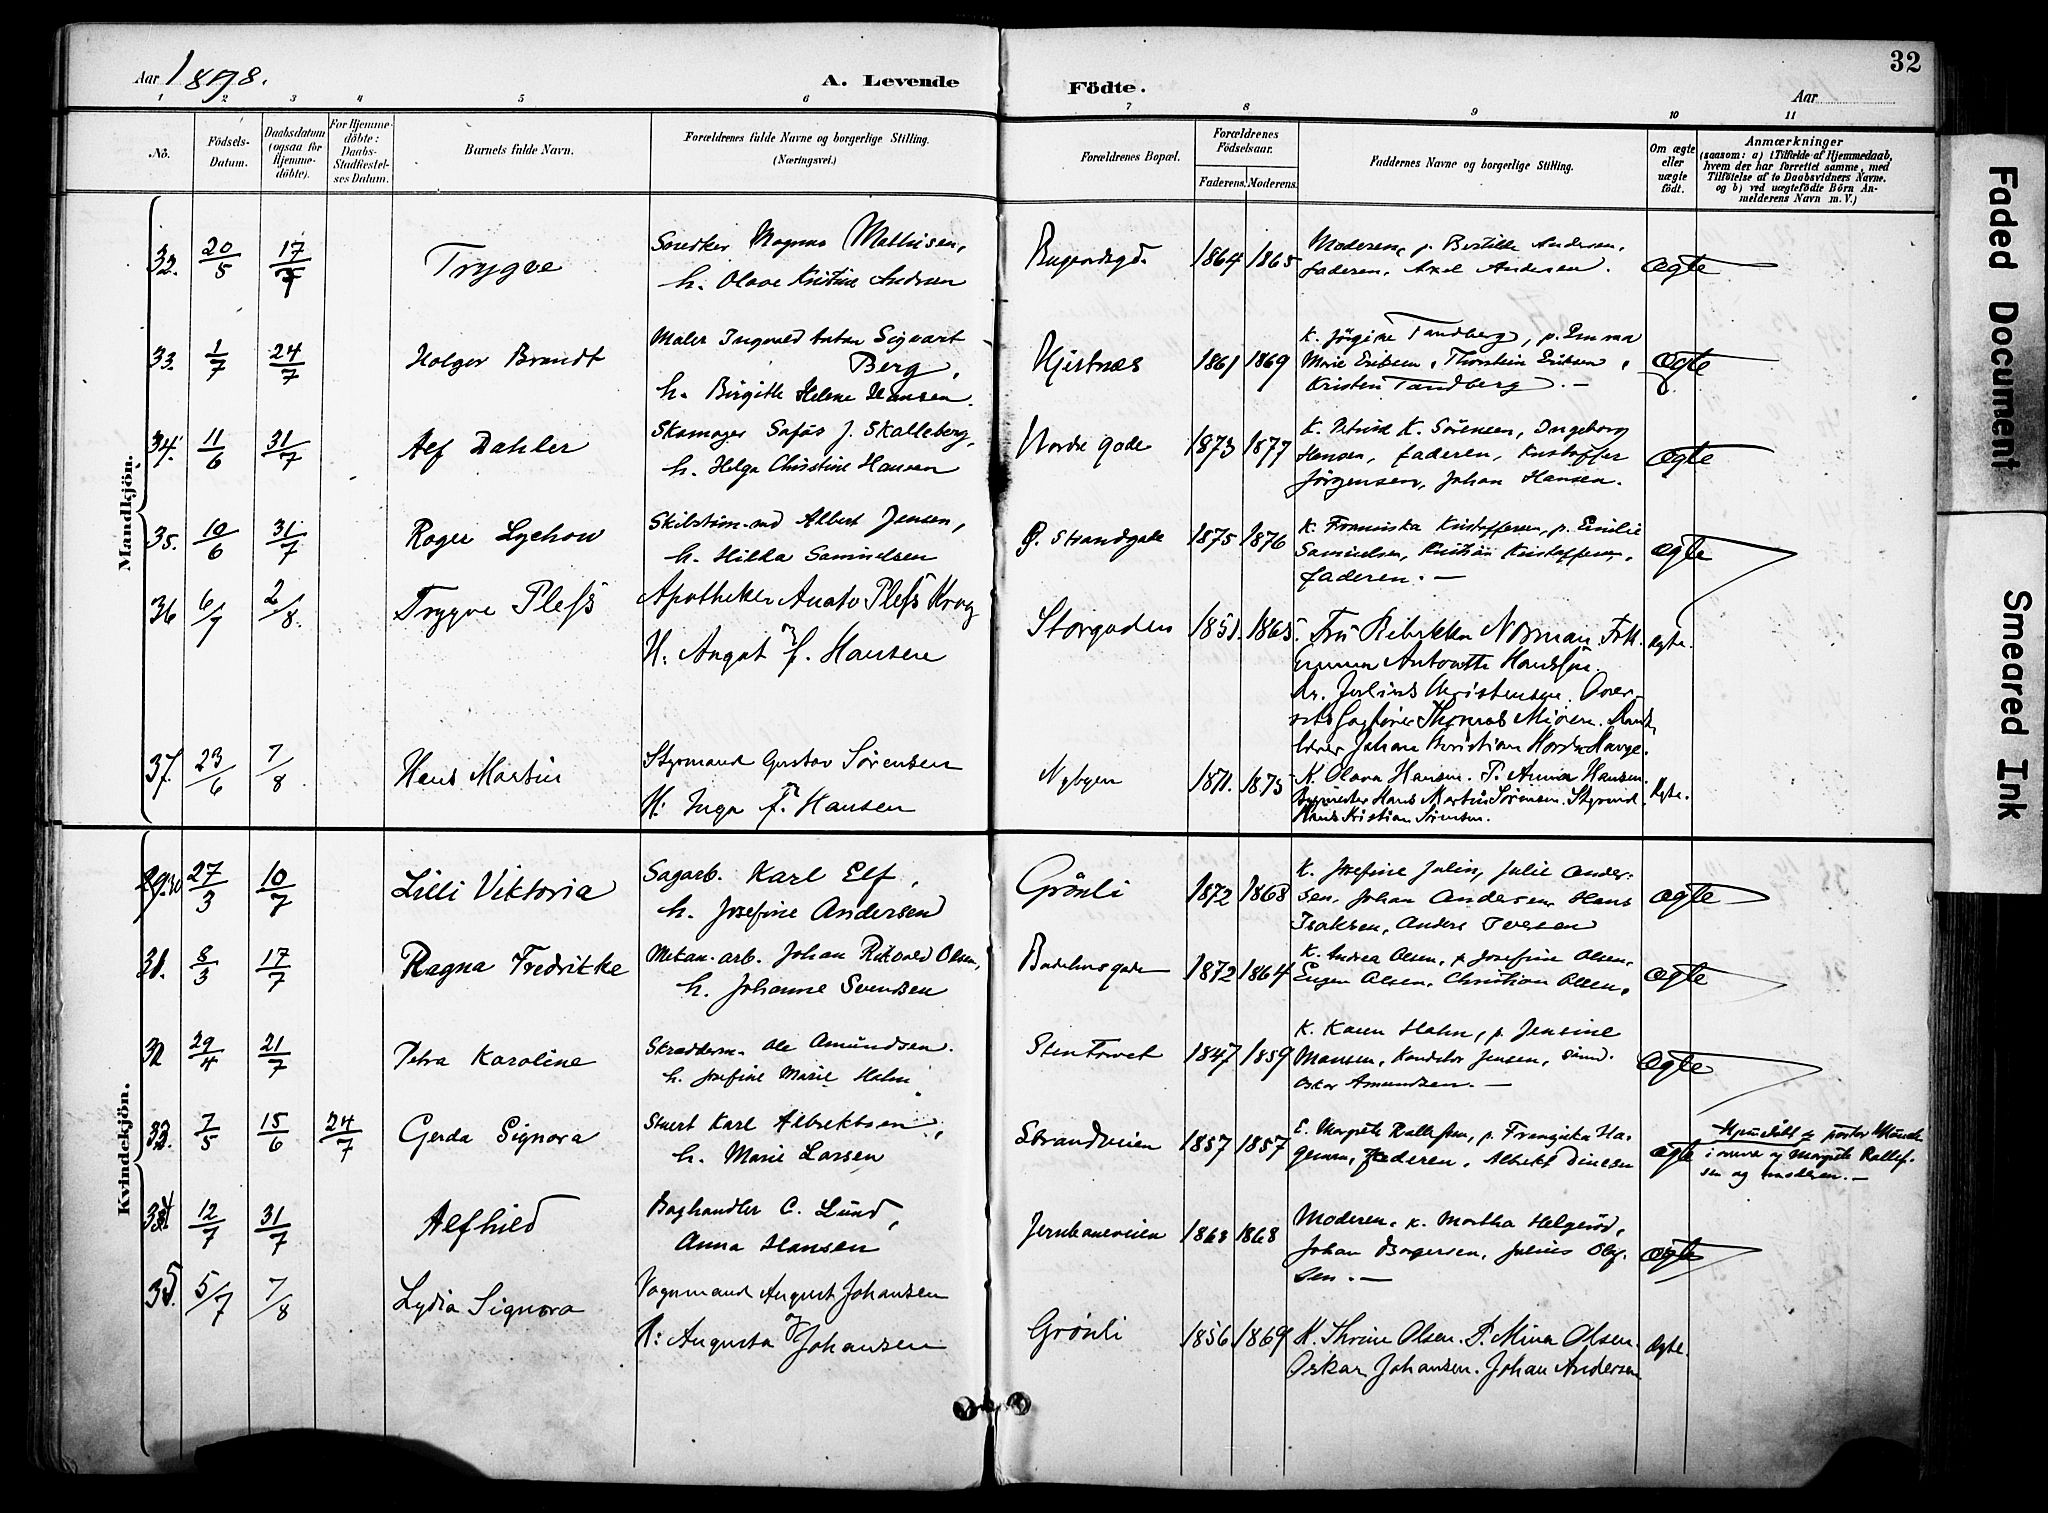 Aar 1898.
A. Levende
Födte.
32
Aar
1 2 3 4 5 6 7 8 9 10 11
No.
Födsels-
Datum.
Daabsdatum
(ogsaa for
Hjemme-
döbte).
For Hjemme-
döbte:
Daabs-
Stadfæstel-
ses Datum.
Barnets fulde Navn.
Forældrenes fulde Navne og borgerlige Stilling.
(Næringsvei.)
Forældrenes Bopæl.
Forældrenes
Födselsaar.
Faderens. Moderens.
Faddernes Navne og borgerlige Stilling.
Om ægte
eller
uægte
födt.
Anmærkninger
(saasom: a) i Tilfælde af Hjemmedaab,
hvem der har forrettet samme, med
Tilföielse af to Daabsvidners Navne.
og b) ved uægtefödte Börn An-
melderens Navn m. V.)
Mandkjön.
32. 20/5 17/7 Trygve
Snedker Magnus Mathisen,
h. Olave Kristine Andersen
1864 1865
Moderen, p. Bertille Andersen,
faderen, Axel Andersen.
ægte
33. 1/7 24/7 Holger Brandt
Maler Ingvald Anton Sigvart
Berg,
h. Birgitte Helene Hansen.
Kjestnæs 1861 1869
K. Jörgine Tandberg, p. Emma
Marie Eriksen, Thorstein Eriksen,
Kristen Tandberg. —
ægte
34. 11/6 31/7 Alf Dahler
Skomager Sofus J. Skalleberg,
h. Helga Christine Hansen
Nordre gade 1873 1877
K. Petrine K. Sörensen, Ingeborg
Hansen, faderen, Kristoffer
Jörgensen, Johan Hansen.
ægte
35. 10/6 31/7 Roger Lychow
Skibstöm.md Albert Jensen,
h. Hilda Samuelsen
Ø. Strandgade 1875 1876
K. Franciska Kristoffersen, p. Emilie
Samuelsen, Kristian Kristoffersen,
faderen. —
ægte
36 6/7 2/8. Trygve Pless
Apotheker Anato Pless Krog
H: August f. Hansen
Storgaden 1851. 1865.
Fru Rebekka Norman. Frk.
Emma Antonette
Julius Christensen.
Thomas
Johan Christian Hauge.
Ægte.
37. 23/6 7/8 Hans Martin
Styrmand Gustav Sörensen
H: Inga f. Hansen
Nybyen 1871. 1875
K. Olava Hansen. P. Anna Hansen.
Hans Martin Sörensen. Styrmd.
Hans Kristian Sörensen.
Ægte.
Kvindekjön.
30 27/3 10/7 Lilli Viktoria
Sagarb. Karl Elf,
h. Josefine Andersen
Grönli 1872 1868
K. Josefine Julin, Julie Ander-
sen, Johan Andersen, Hans
Isaksen, Anders Iversen
ægte
31. 8/3 17/7 Ragna Fredrikke
Mekan. arb. Johan Rikvald Olsen,
h. Johanne Svendsen
Badehusgaden 1872 1864
K. Andrea Olsen, p. Josefine Olsen,
Eugen Olsen, Christian Olsen,
ægte
32 29/4 21/7 Petra Karoline
Skrædderm. Ole Amundsen.
h. Josefine Marie Hahn.
Stentorvet 1847 1859
K. Karen Hahn, p. Jensine
Hansen, Konduktör Jensen,
Oskar Amundsen. —
ægte
33. 7/5 15/6 24/7 Gerda Signora
Stuert Karl Albrektsen,
h. Marie Larsen
Strandveien 1857 1857
E. Margrete Rallefsen, p. Franziska Ha-
gemann, Faderen, Albrekt Dinesen
ægte
Hjemdöbt af pastor
og Margrete Rallef-
sen og moderen. —
34 12/7 31/7 Alfhild
Boghandler C. Lund,
Anna Hansen
Jernbaneveien 1868 1868
Moderen, K. Martha Helgeröd,
Johan Borgersen, Julius
sen. —
ægte
35. 5/7 7/8 Lydia Signora
Vognmand August Johansen
H: Augusta f. Johansen
Grönli 1856 1869
K. Thrine Olsen. P. Mina Olsen.
Oskar Johansen. Johan Andersen
Ægte.
Faded Document
Smeared Ink